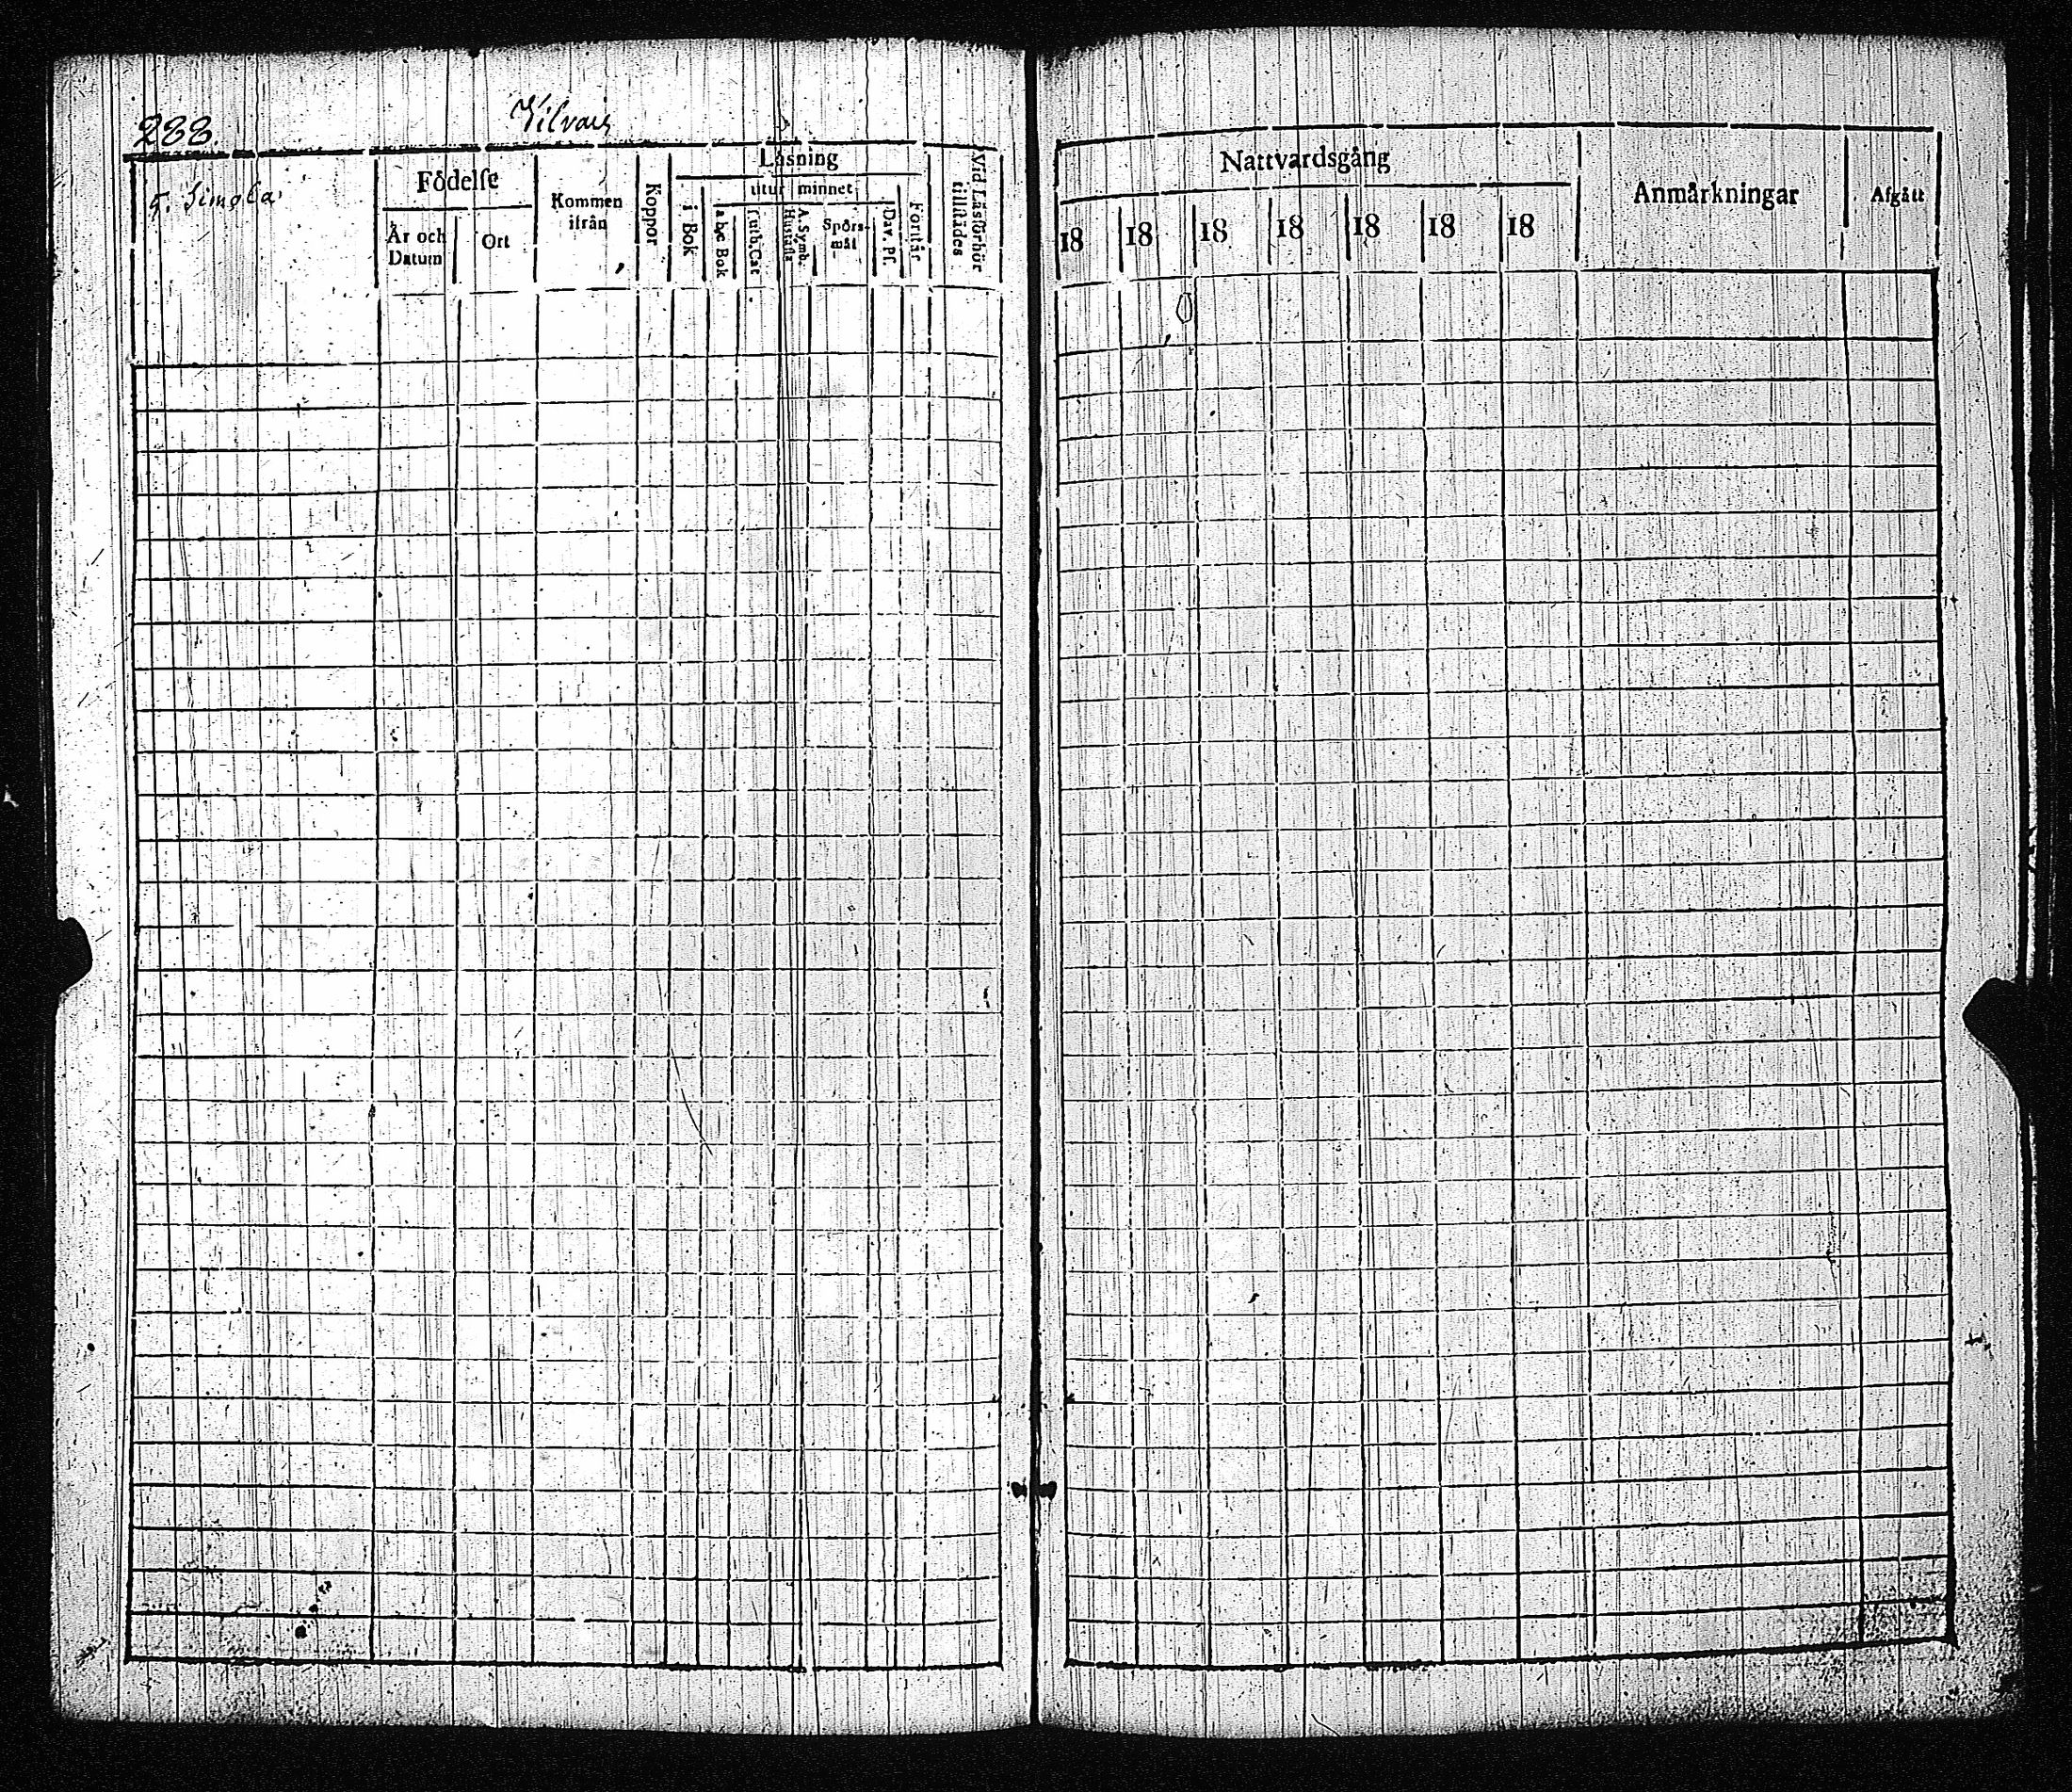 288.
Vilvais
5. Simola
Födelſe
År och Datum
Ort
Kommen ifrån
Koppor
Läsning
i Bok
utur minnet
a b c Bok
Luth. Cat
A. Symb. Hustafla
Spörs-mål
Dav. Pſ.
Förſtår
Vid Läsförhör tillſtädes
Nattvardsgång
18 18 18 18 18 18 18
Anmärkningar
Afgått